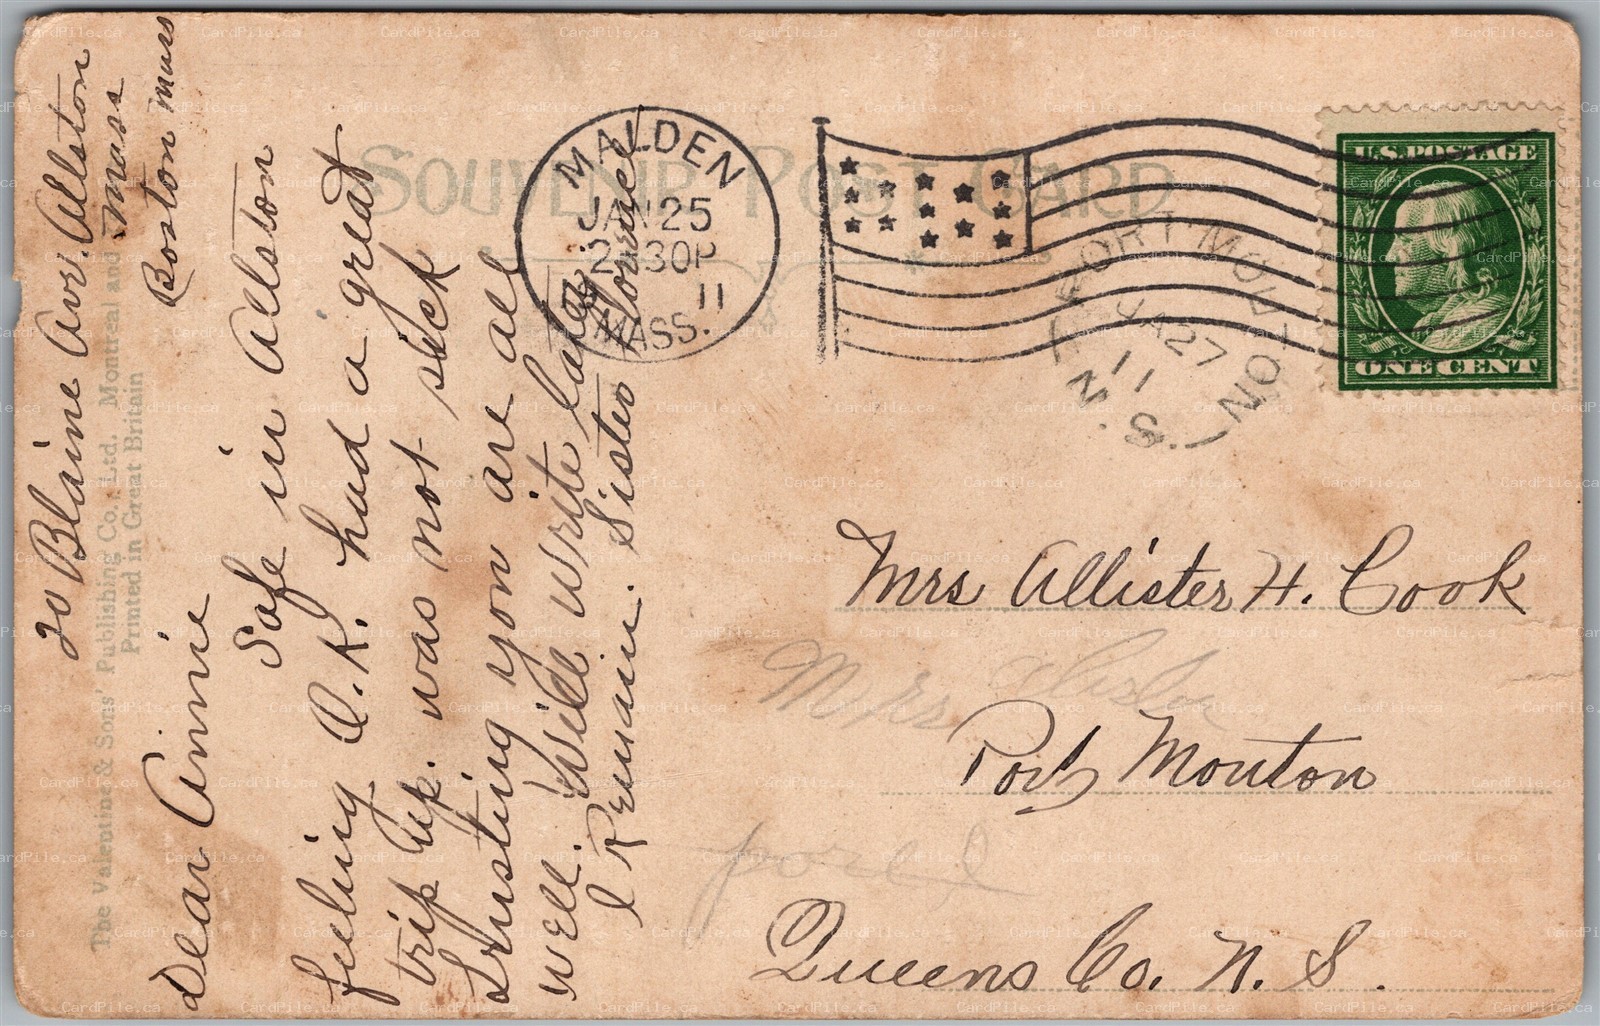 20 Blaine Ave. Allston
Mass
Boston Mass
Dear Annie
Safe in Allston
feeling O.K. had a great
trip up. was not sick
Trusting you are all
well. Will write later
I Remain. Sister Florence
The Valentine & Sons' Publishing Co., Ltd. Montreal and
Printed in Great Britain
SOUVENIR POST CARD
MALDEN
JAN 25
2 30P
11
MASS.
PORT MOUTON
JA 27
11
N.S.
U.S. POSTAGE
ONE CENT
Mrs Allister H. Cook
Mrs
Port Mouton
Queens Co. N. S.
CardPile.ca